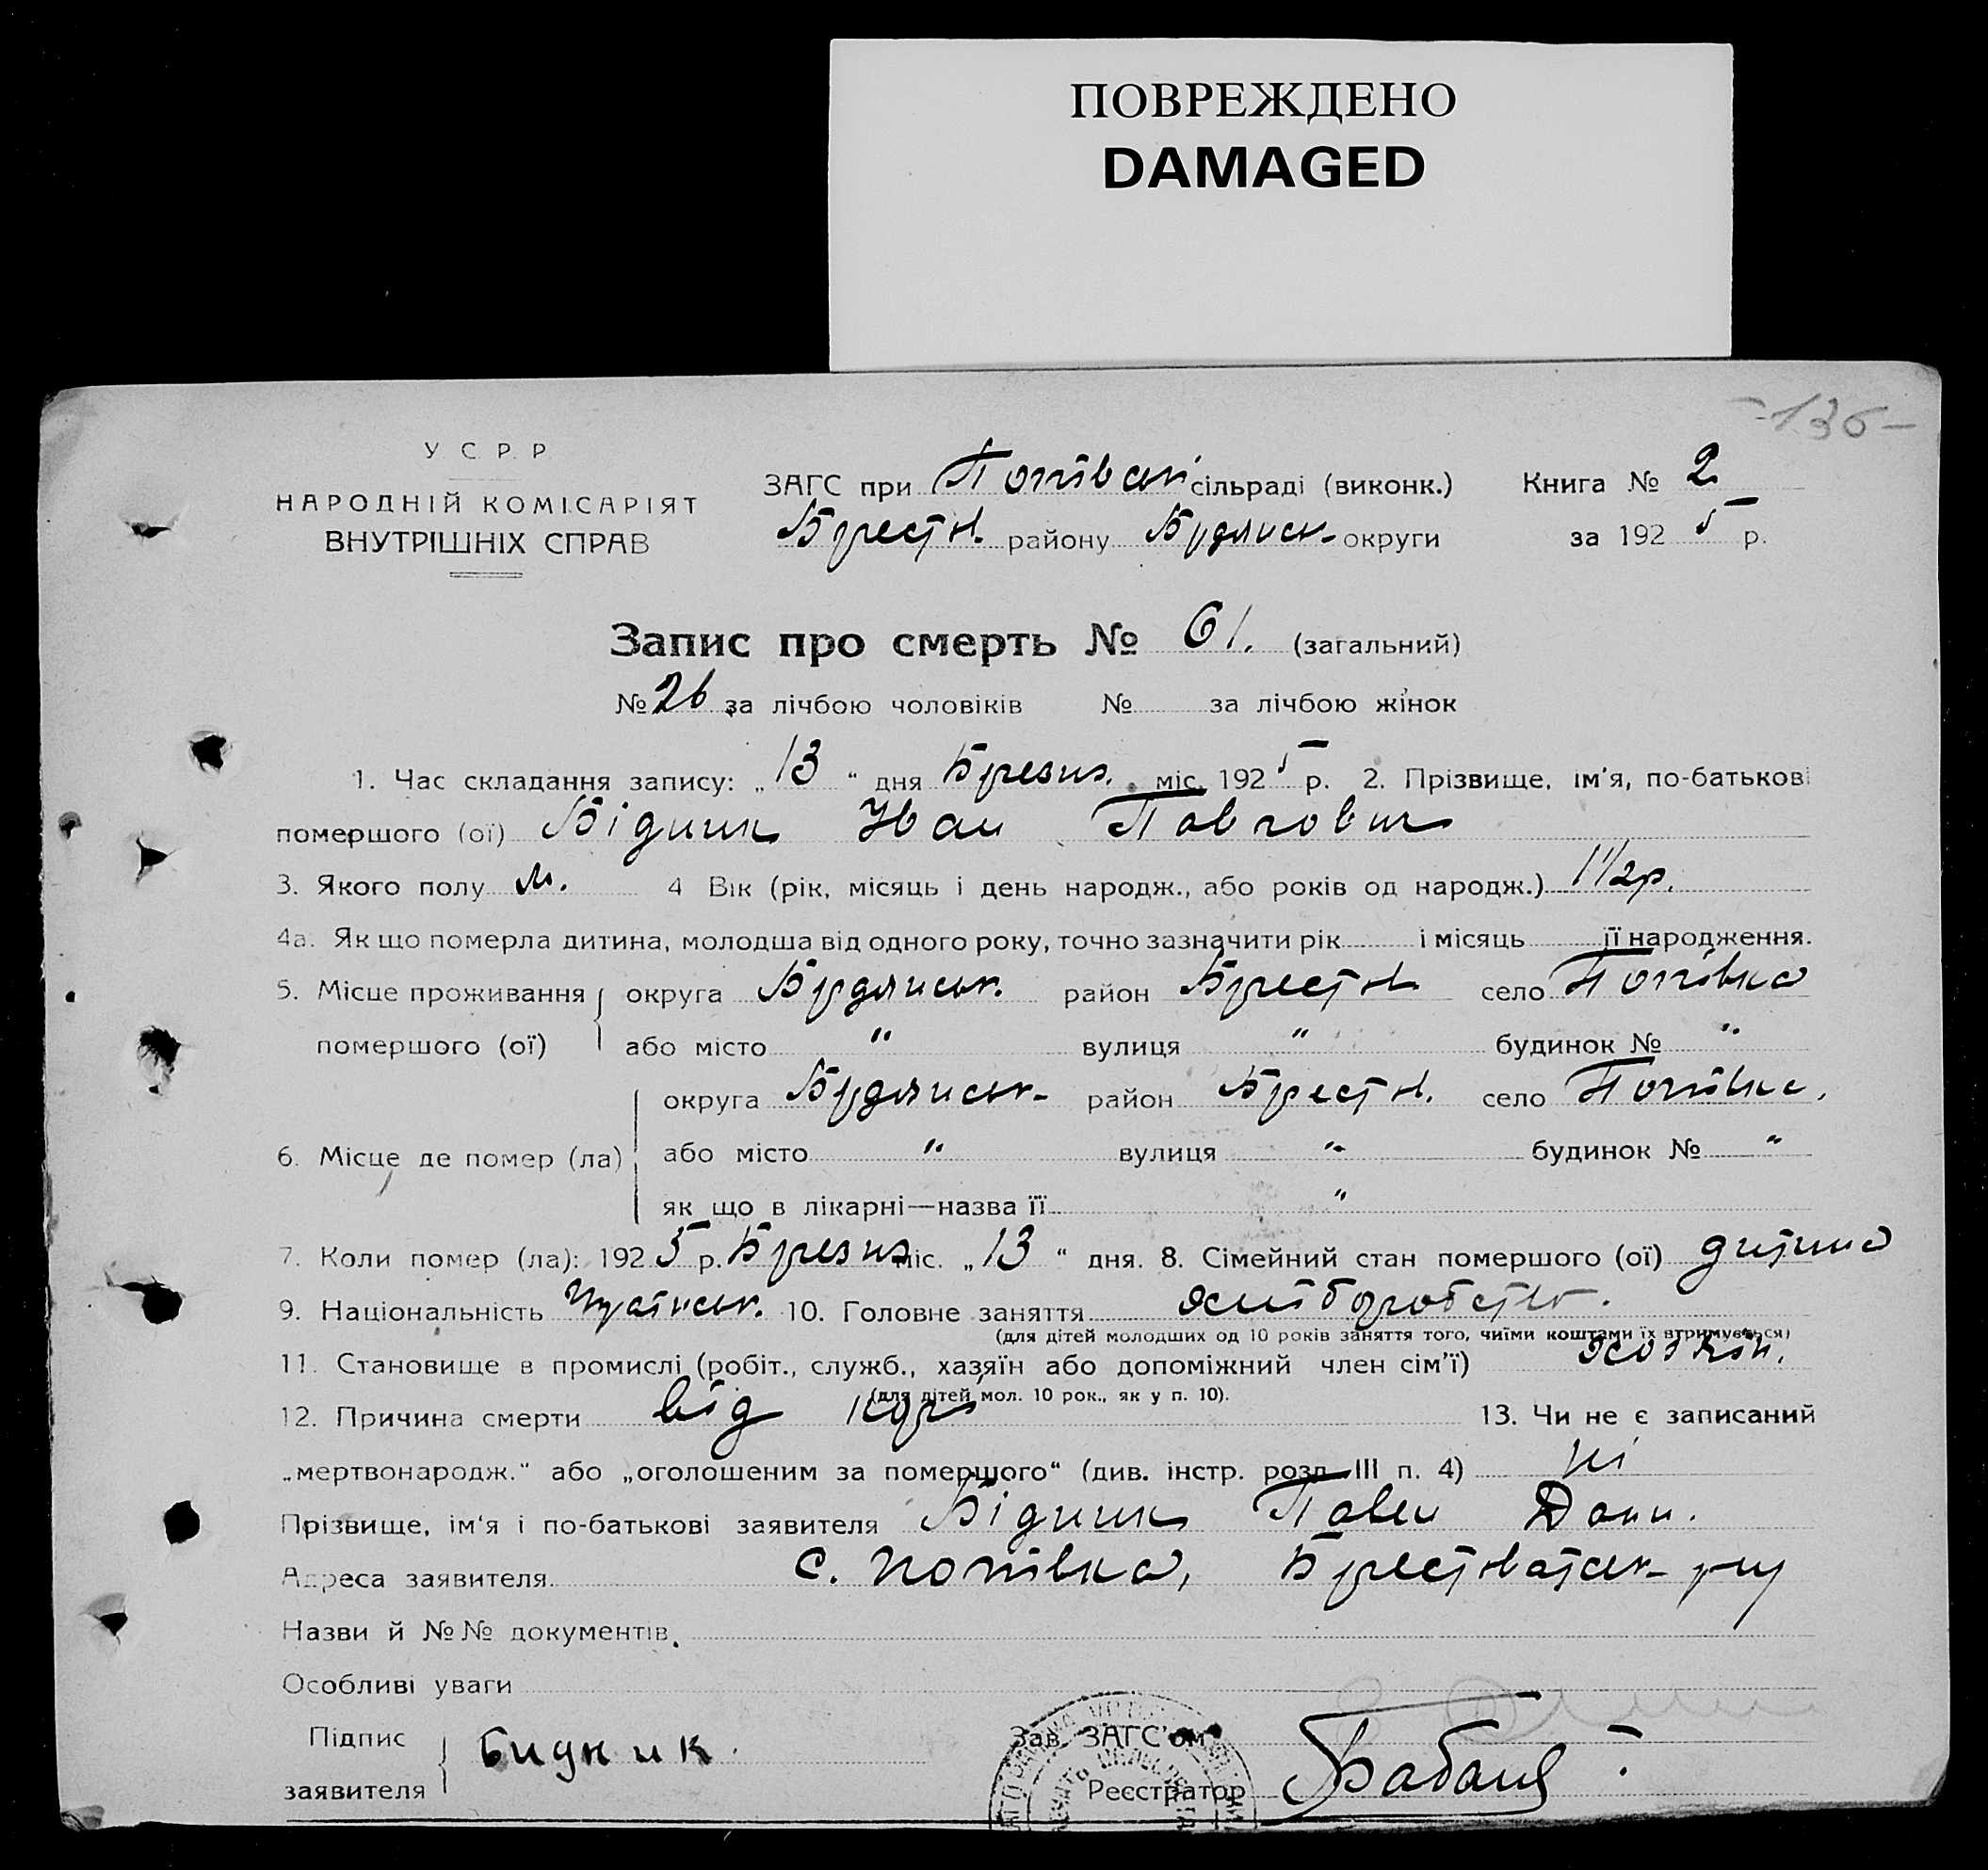 ПОВРЕЖДЕНО
DAMAGED
-136-
У С Р Р
НАРОДНІЙ КОМІСАРІЯТ
ВНУТРІШНІХ СПРАВ
ЗАГС при Попівській сільраді (виконк.) Книга № 2
району округи за 1925 р.
Запис про смерть № 61. (загальний)
№ 26 за лічбою чоловіків № за лічбою жінок
1. Час складання запису: „13“ дня Березня міс. 1925 р. 2. Прізвище, ім'я, по-батькові
помершого (ої) Бідник Іван Павлович
3. Якого полу м. 4 Вік (рік, місяць і день народж., або років од народж.) 1 1/2 р.
4а. Як що померла дитина, молодша від одного року, точно зазначити рік і місяць її народження.
5. Місце проживання округа Бердянськ. район Берестов. село Попівка
помершого (ої) або місто " вулиця " будинок № "
округа Бердянськ- район Берестов. село Попівка,
6. Місце де помер (ла) або місто " вулиця " будинок № "
як що в лікарні—назва її "
7. Коли помер (ла): 1925 р. Березня міс. „13“ дня. 8. Сімейний стан помершого (ої) дитина
9. Національність 10. Головне заняття хліборобство.
(для дітей молодших од 10 років заняття того, чиїми коштами їх втримується)
11. Становище в промислі (робіт., служб., хазяїн або допоміжний член сім'ї)
(для дітей мол. 10 рок., як у п. 10).
12. Причина смерти від корі 13. Чи не є записаний
„мертвонародж.“ або „оголошеним за померщого“ (див. інстр. розд. III п. 4) ні
Прізвище, ім'я і по-батькові заявителя Бідник Павел Дани.
Адреса заявителя с. Попівка, Берестоватськ- р-ну
Назви й №№ документів.
Особливі уваги
Підпис заявителя Бидник.
Зав. ЗАГС'ом
Реєстратор